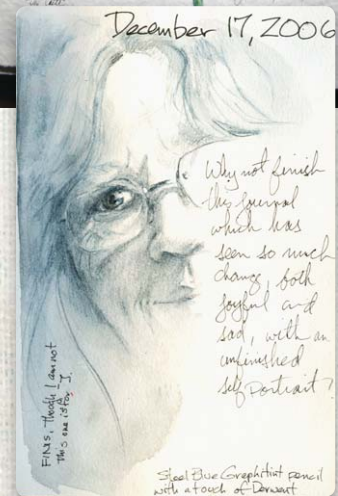 December 17, 2006
Why not finish
this journal
which has
seen so much
change, both
joyful and
sad, with an
unfinished
self portrait?
FINIS, though I am not
This one is for -J.
Steel Blue Graphitint pencil
with a touch of Derwent